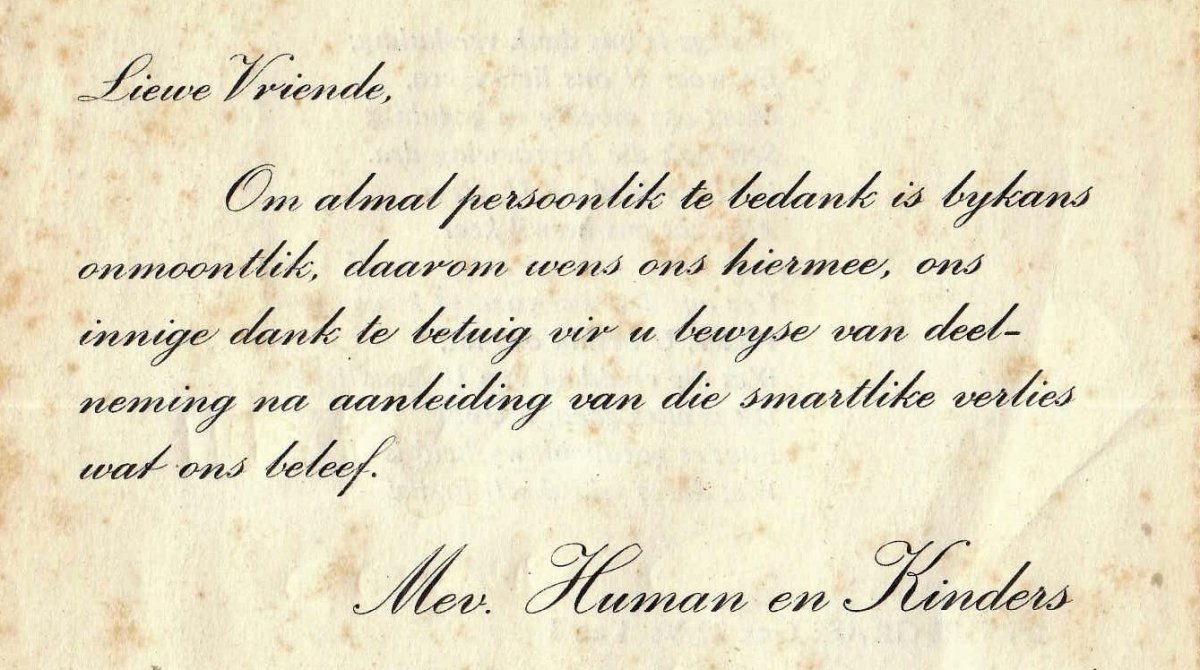 Liewe Vriende,
Om almal persoonlik te bedank is bykans
onmoontlik, daarom wens ons hiermee, ons
innige dank te betuig vir u bewyse van deel-
neming na aanleiding van die smartlike verlies
wat ons beleef.
Mev. Human en Kinders